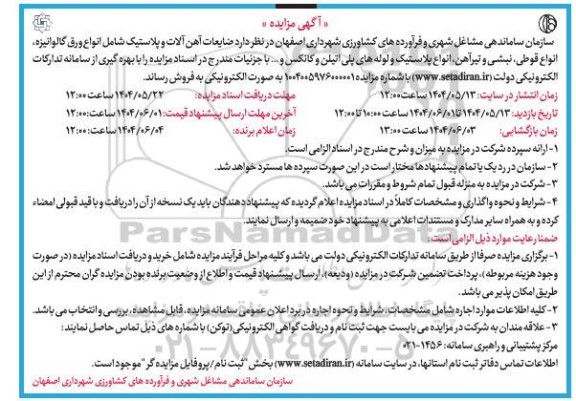 « آگهی مزایده »
سازمان ساماندهی مشاغل شهری و فرآورده های کشاورزی شهرداری اصفهان در نظر دارد ضایعات آهن آلات و پلاستیک شامل انواع ورق گالوانیزه،
انواع قوطی، نبشی و تیرآهن، انواع پلاستیک و لوله های پلی اتیلن و کانکس و... با جزئیات مندرج در اسناد مزایده را با بهره گیری از سامانه تدارکات
الکترونیکی دولت (www.setadiran.ir) با شماره مزایده ۱۰۰۴۰۰۵۹۷۶۰۰۰۰۰۱ به صورت الکترونیکی به فروش رساند.
زمان انتشار در سایت: ۱۴۰۴/۰۵/۱۳ ساعت ۱۲:۰۰ مهلت دریافت اسناد مزایده: ۱۴۰۴/۰۵/۲۲ ساعت ۱۲:۰۰
تاریخ بازدید: ۱۴۰۴/۰۵/۱۳ تا ۱۴۰۴/۰۶/۰۱ ساعت ۱۰:۰۰ تا ۱۲:۰۰ آخرین مهلت ارسال پیشنهاد قیمت: ۱۴۰۴/۰۶/۰۱ ساعت ۱۲:۰۰
زمان بازگشایی: ۱۴۰۴/۰۶/۰۳ ساعت ۱۳:۰۰ زمان اعلام برنده: ۱۴۰۴/۰۶/۰۴ ساعت ۱۲:۰۰
۱- ارائه سپرده شرکت در مزایده به میزان و شرح مندرج در اسناد الزامی است.
۲- سازمان در رد یک یا تمام پیشنهادها مختار است در این صورت سپرده ها مسترد خواهد شد.
۳- شرکت در مزایده به منزله قبول تمام شروط و مقررات می باشد.
۴- شرایط و نحوه واگذاری و مشخصات کاملاً در اسناد مزایده اعلام گردیده که پیشنهاددهندگان باید یک نسخه از آن را دریافت و با قید قبولی امضاء
کرده و به همراه سایر مدارک و مستندات اعلامی به پیشنهاد خود ضمیمه و ارسال نمایند.
ضمنا رعایت موارد ذیل الزامی است:
۱- برگزاری مزایده صرفا از طریق سامانه تدارکات الکترونیکی دولت می باشد و کلیه مراحل فرآیند مزایده شامل خرید و دریافت اسناد مزایده (در صورت
وجود هزینه مربوطه)، پرداخت تضمین شرکت در مزایده (ودیعه)، ارسال پیشنهاد قیمت و اطلاع از وضعیت برنده بودن مزایده گران محترم از این
طریق امکان پذیر می باشد.
۲- کلیه اطلاعات موارد اجاره شامل مشخصات، شرایط و نحوه اجاره در برد اعلان عمومی سامانه مزایده، قابل مشاهده، بررسی و انتخاب می باشد.
۳- علاقه مندان به شرکت در مزایده می بایست جهت ثبت نام و دریافت گواهی الکترونیکی (توکن) با شماره های ذیل تماس حاصل نمایند:
مرکز پشتیبانی و راهبری سامانه: ۱۴۵۶-۰۲۱
اطلاعات تماس دفاتر ثبت نام استانها، در سایت سامانه (www.setadiran.ir) بخش "ثبت نام/پروفایل مزایده گر" موجود است.
سازمان ساماندهی مشاغل شهری و فرآورده های کشاورزی شهرداری اصفهان
ParsNamadData
۰۲۱-۸۸۳۴۹۶۷۰-۵